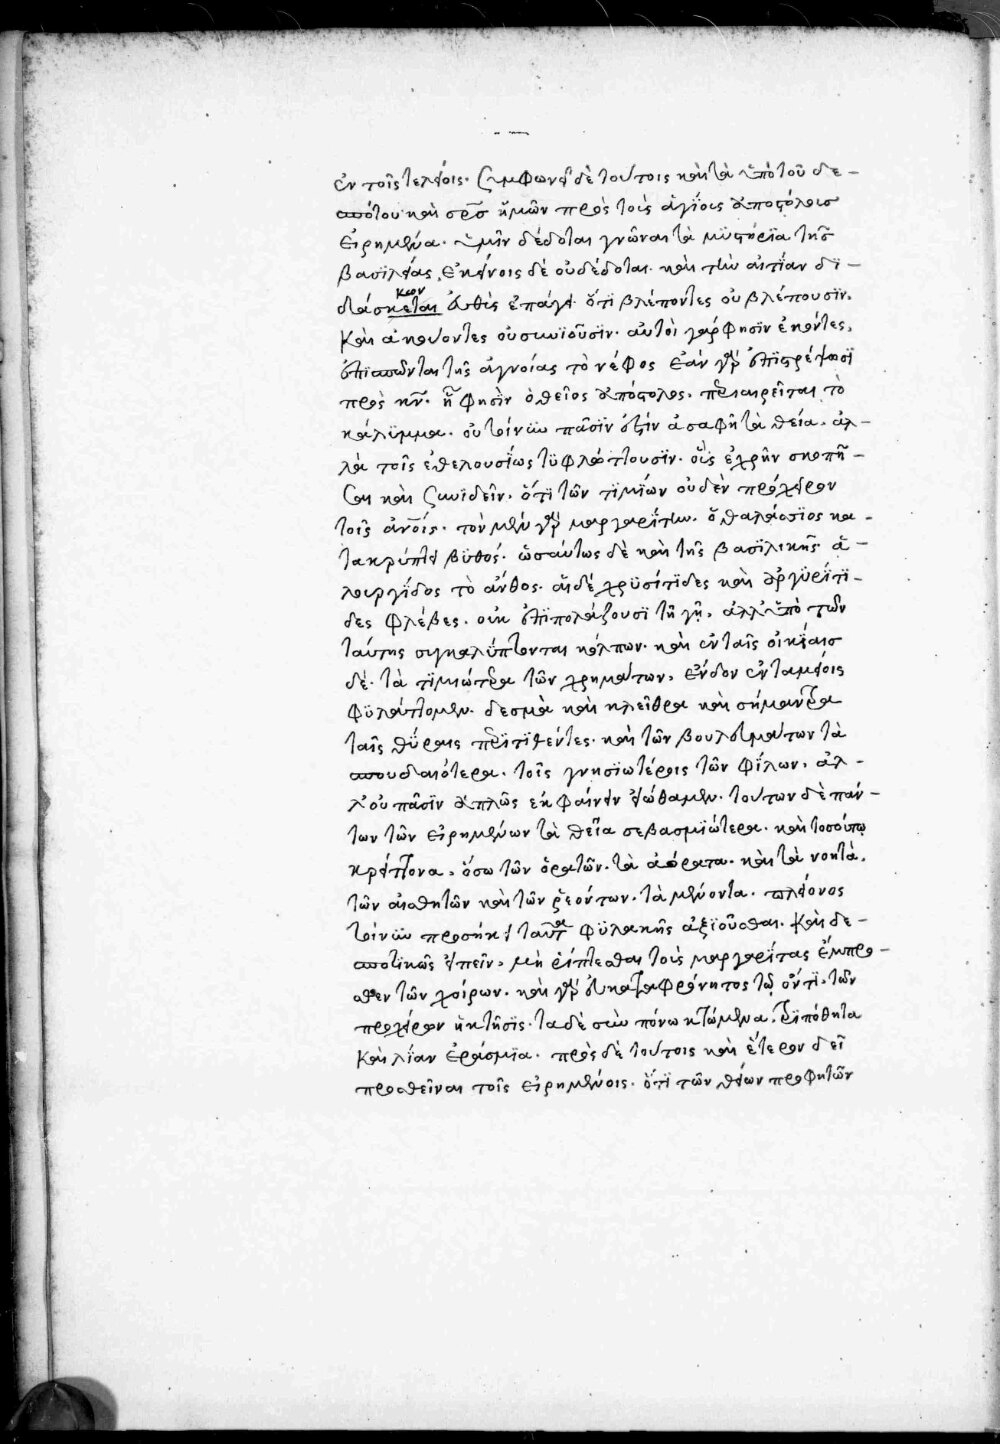 ἐν τοῖς τελείοις. συμφωνεῖ δὲ τούτοις καὶ τὰ ὑπὸ τοῦ δε-
σπότου καὶ σρ̅σ ἡμῶν πρὸς τοὺς ἁγίους ἀποστόλους
εἰρημένα. ὑμῖν δέδοται γνῶναι τὰ μυστήρϊα τῆς
βασϊλείας, ἐκείνοις δὲ οὐ δέδοται. καὶ τὴν αἰτίαν δϊ-
δάσκων εὐθὺς ἐπάγει ὅτϊ βλέποντες οὐ βλέπουσϊν.
καὶ ἀκούοντες οὐ συνϊοῦσϊν. αὐτοὶ γάρ φησϊν ἑκόντες,
ἐπϊσπῶνται τῆς ἀγνοίας τὸ νέφος ἐὰν γὰρ ἐπϊστρέψωσϊ
πρὸς κν̅. ᾗ φησὶν ὁ θεῖος ἀπόστολος. περιαιρεῖται τὸ
κάλυμμα. οὐ τοίνυν πᾶσϊν ἐστὶν ἀσαφῆ τὰ θεία. ἀλ-
λὰ τοῖς ἐθελουσΐως τϋφλώττουσϊν. οὓς ἐχρῆν σκοπῆ-
σαι καὶ συνϊδεῖν. ὅτϊ τῶν τϊμίων οὐδὲν πρόχειρον
τοῖς ἀν̅οίς. τὸν μὲν γὰρ μαργαρΐτην. ὁ θαλάσσϊος κα-
τακρύπτει βϋθός. ὡσαύτως δὲ καὶ τῆς βασϊλικῆς ἁ-
λουργίδος τὸ ἄνθος. αἱ δὲ χρϋσίτϊδες καὶ ἀργϋρίτϊ-
δες φλέβες. οὐκ ἐπϊπολάζουσϊ τῇ γῇ. ἀλλ' ὑπὸ τῶν
ταύτης συγκαλύπτονται κόλπων. καὶ ἐν ταῖς οἰκίαισ
δὲ. τὰ τϊμιώτερα τῶν χρημάτων. ἔνδον ἐν ταμείοις
φϋλάττομεν. δεσμὰ καὶ κλεῖθρα καὶ σήμαντρα
ταῖς θύραις περϊτϊθέντες. καὶ τῶν βουλευμάτων τὰ
σπουδαιότερα. τοῖς γνησϊωτέροις τῶν φίλων. ἀλ-
λ' οὐ πᾶσϊν ἁπλῶς ἐκφαίνειν εἰώθαμεν. τούτων δὲ πάν-
των τῶν εἰρημένων τὰ θεῖα σεβασμϊώτερα. καὶ τοσούτω
κρείττονα. ὅσω τῶν ὁρατῶν. τὰ ἀόρατα. καὶ τὰ νοητὰ.
τῶν αἰσθητῶν καὶ τῶν ῥεόντων. τὰ μένοντα. πλείονος
τοίνυν προσήκει ταῦτα φϋλακῆς ἀξϊοῦσθαι. καὶ δε-
σποτϊκῶς εἰπεῖν. μὴ ῥίπτεσθαι τοὺς μαργαρΐτας ἔμπρο-
σθεν τῶν χοίρων. καὶ γὰρ εὐκαταφρόνητος τῷ ὄντϊ. τῶν
προχείρων ἡ κτῆσϊς. τὰ δὲ σὺν πόνω κτώμενα. τρϊπόθητα
καὶ λίαν ἐράσμϊα. πρὸς δὲ τούτοις καὶ ἕτερον δεῖ
προσθεῖναι τοῖς εἰρημένοις. ὅτϊ τῶν θείων προφητῶν